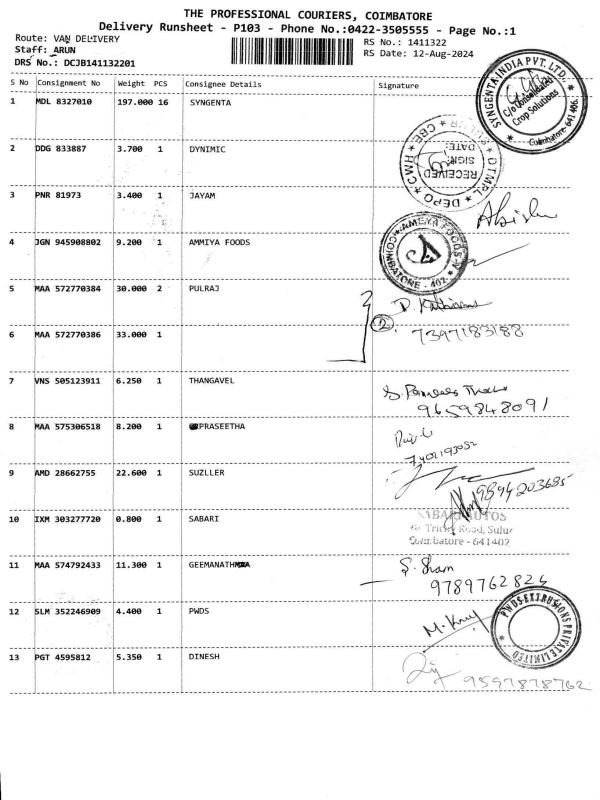 THE PROFESSIONAL COURIERS, COIMBATORE
Delivery Runsheet - P103 - Phone No.:0422-3505555 - Page No.:1
Route: VAN DELIVERY
RS No.: 1411322
Staff: ARUN
RS Date: 12-Aug-2024
DRS No.: DCJB141132201
S No Consignment No Weight PCS Consignee Details Signature
1 MDL 8327010 197.000 16 SYNGENTA
SYNGENTA INDIA PVT. LTD.
C/o Consolidated
Crop Solutions
Coimbatore-641406.
2 DDG 833887 3.700 1 DYNIMIC
RECEIVED
SIGN:
DATE:
DTMPL * DEPO * CMH
CBE
3 PNR 81973 3.400 1 JAYAM
4 JGN 945908802 9.200 1 AMMIYA FOODS
AMEYA FOODS
COIMBATORE - 402
5 MAA 572770384 30.000 2 PULRAJ
2
7397183188
6 MAA 572770386 33.000 1
7 VNS 505123911 6.250 1 THANGAVEL
9659848091
8 MAA 575306518 8.200 1 PRASEETHA
9 AMD 28662755 22.600 1 SUZLLER
9894203685
10 IXM 303277720 0.800 1 SABARI
SABARI AUTOS
Tricky Road, Sulur
Coimbatore - 641402
11 MAA 574792433 11.300 1 GEEMANATH
S. Sham
9789762824
12 SLM 352246909 4.400 1 PWDS
PWDS EXTRUSIONS PRIVATE LIMITED
13 PGT 4595812 5.350 1 DINESH
9597878762